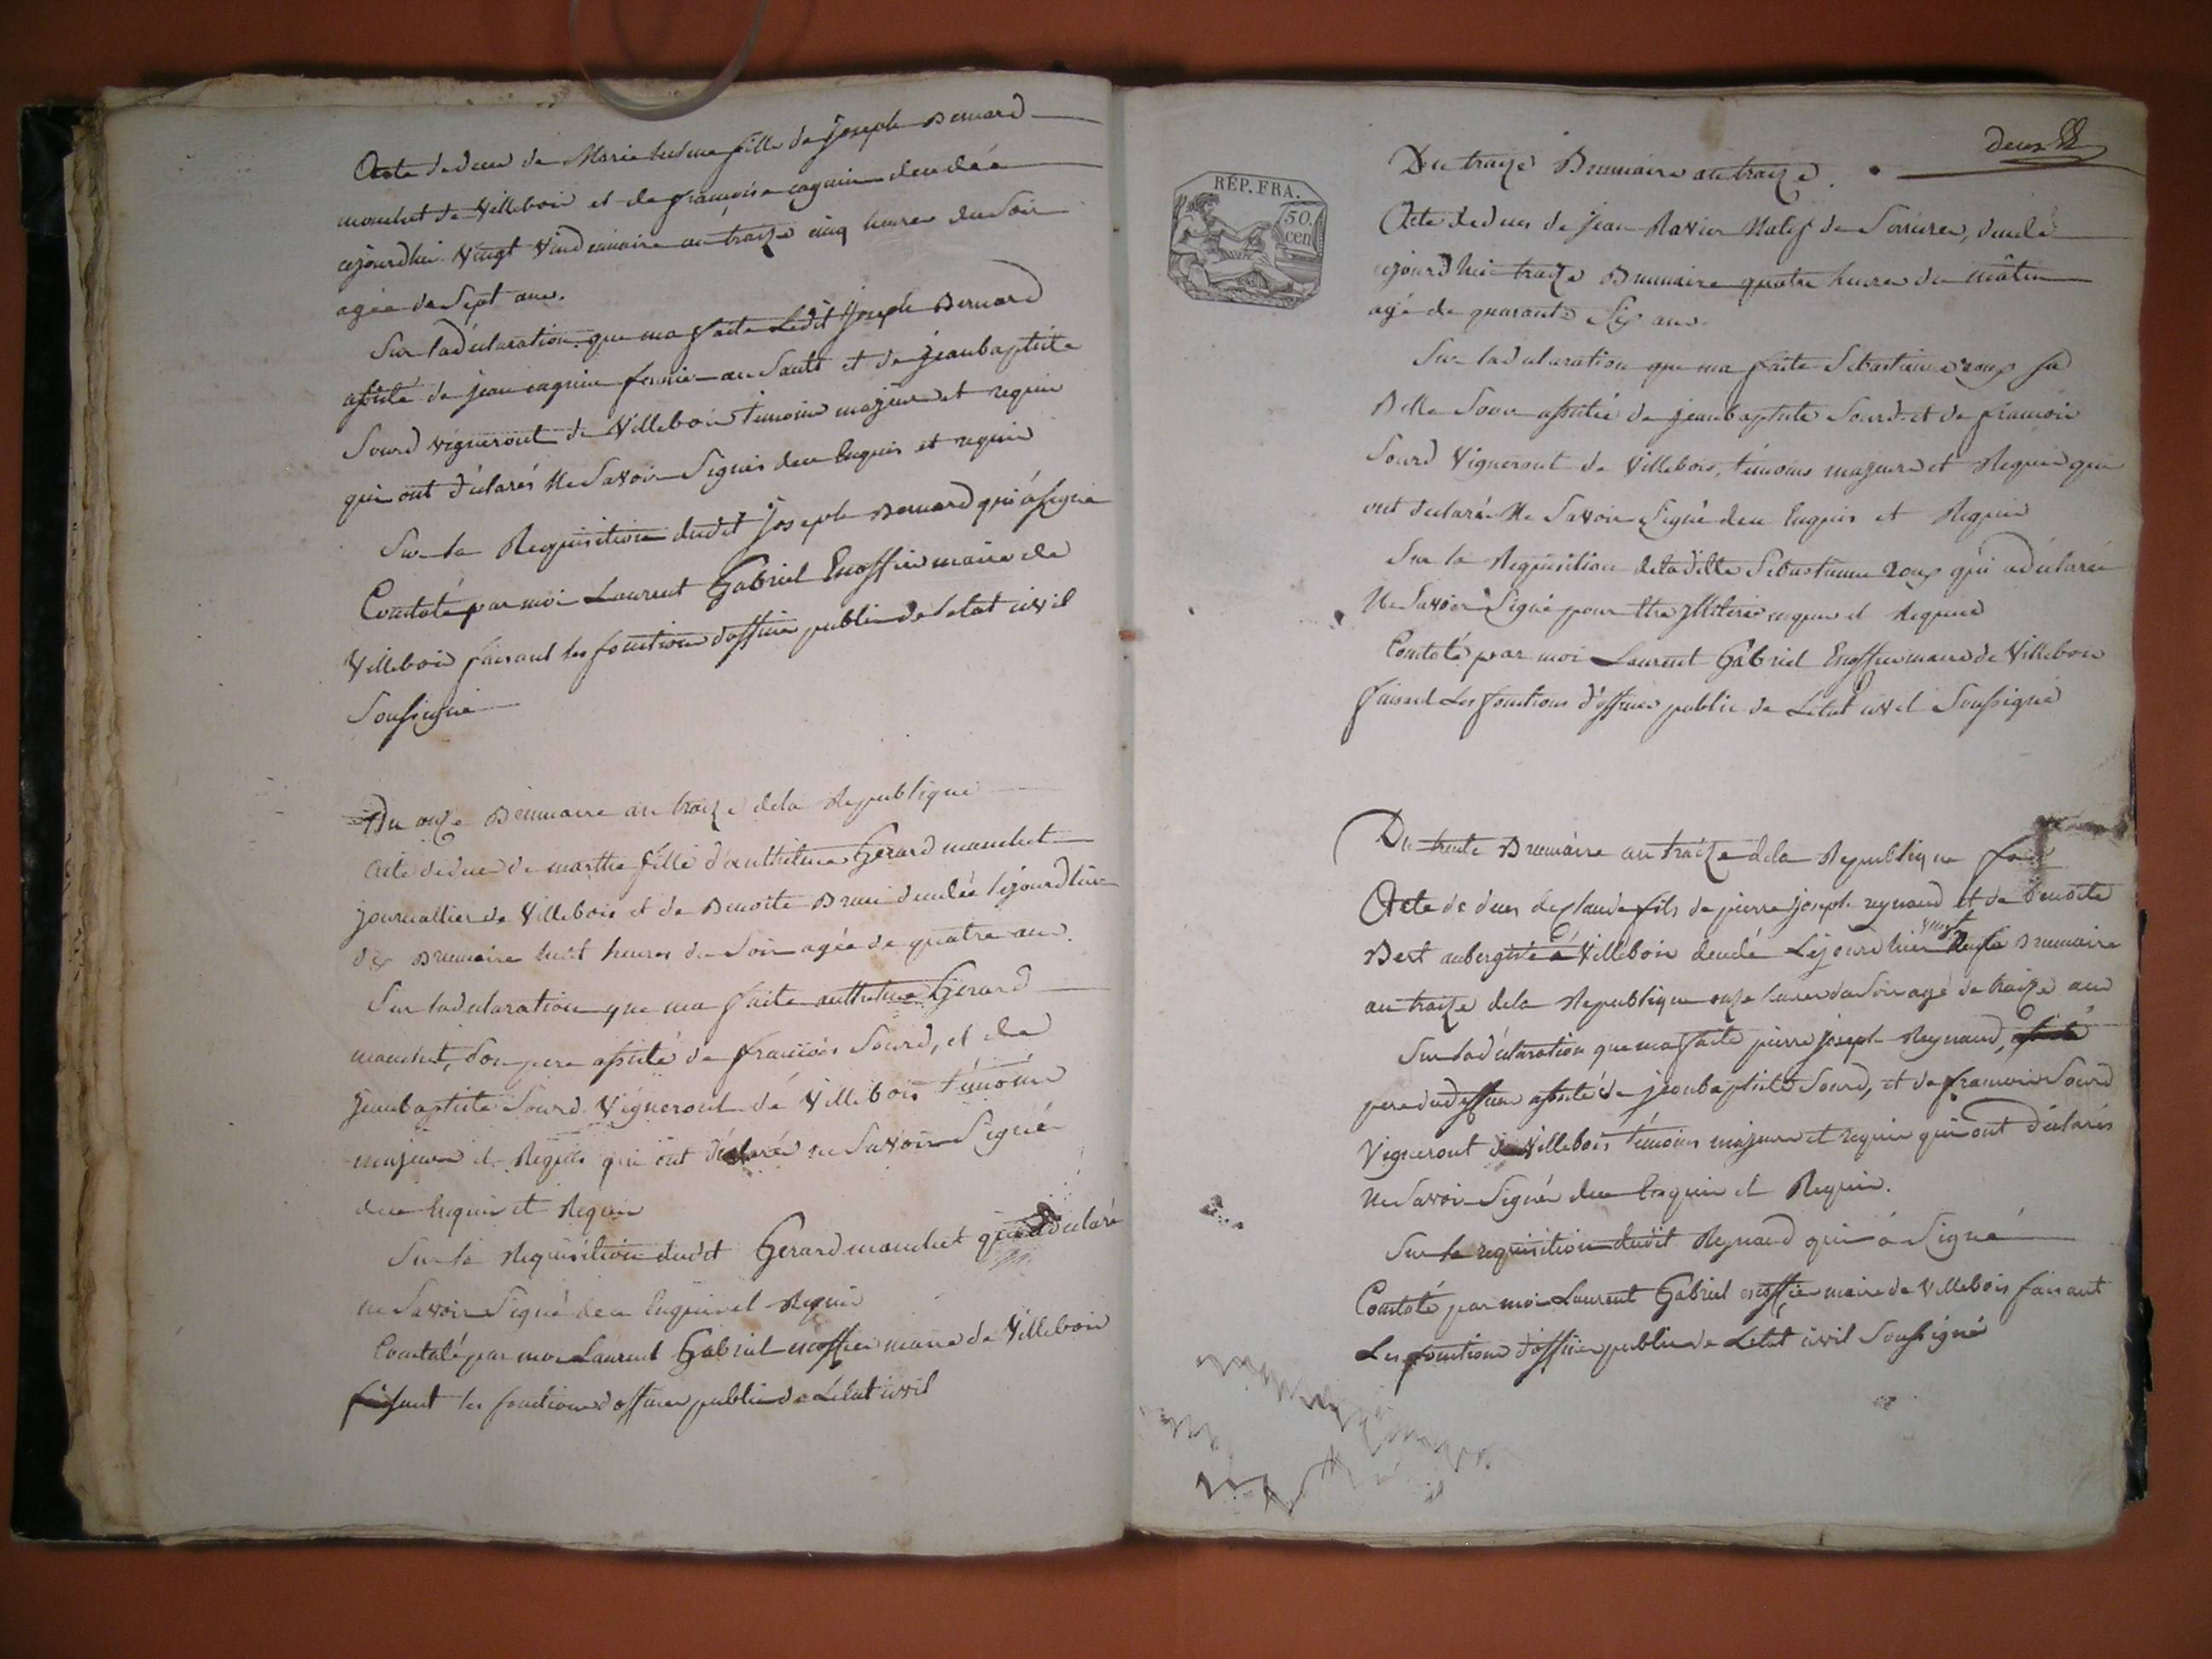 Acte de deces de Marie  fille de Joseph Bernard
 de Villebois et de françoise cagnin decedée
cejourdhui vingt vindemiaire an traize cinq heures du soir
agée de sept ans.
Sur la déclaration que ma faite Ledit Joseph Bernard
assisté de jean cagnin fermier au Sault et de jeanbaptiste
Sourd vigneront de Villebois témoins majeurs et requis
qui ont déclarés Ne Savoir Signés dece Enquis et requis
Sur la Requisition dudit joseph Bernard qui à Signé
Constaté par moi Laurent Gabriel  maire de
Villebois faisant les fonctions d'officier public de l'etat civil
Soussigné
Du onze Brumaire an traize dela Republique
Acte de deces de marthe fille d'anthelme Gerard manchet
journallier de Villebois et de Benoite  decedée lejourdhier
dix Brumaire huit heures du Soir agée de quatre ans.
Sur la declaration que ma faite anthelme Gerard
manchet, Son pere assisté de françois Sourd, et de
Jeanbaptiste Sourd Vigneront de Villebois témoins
majeurs et Requis qui ont déclaré ne Savoir Signé
dece Enquis et Requis
Sur la Requisition dudit Gerard manchet qui a declaré
ne Savoir Signé dece Enquis et Requis
Constaté par moi Laurent Gabriel  maire de Villebois
faisant les fonctions d'officier public de Letat civil
deux
Du traize Brumaire an traize.
RÉP. FRA.
50.
cen.
Acte de deces de Jean Ravier Natif de Serrieres, decedé
cejourdhui traize Brumaire quatre heures du mâtin
agé de quarante Six ans.
Sur la declaration que ma faite Sébastienne roux Sa
Belle Soeur assistée de jeanbaptiste Sourd et de françois
Sourd Vigneront de Villebois, témoins majeurs et Requis qui
ont declaré Ne Savoir Signé dece Enquis et Requis
Sur la Requisition deladitte Sebastienne Roux qui a déclarée
Ne Savoir Signé pour Etre jlliterée enquise et Requise
Constaté par moi Laurent Gabriel  maire de Villebois
faisant Les fonctions d'officier public de Létat civil Soussigné
Du trente Brumaire an traize dela Republique
Acte de deces de claude fils de pierre joseph reynaud et de Benoite
Bert aubergiste à Villebois decedé Lejourdhier vingt neuf Brumaire
an traize dela Republique onze heures du Soir agé de traize ans
Sur la déclaration que ma faite pierre joseph Reynaud,
pere du dessus assisté de jeanbaptiste Sourd, et de francois Sourd
Vigneront de Villebois témoins majeurs et requis qui ont déclarés
Ne Savoir Signés dece Enquis et Requis.
Sur la requisition dudit Reynaud qui à Signé
Constaté par moi Laurent Gabriel  maire de Villebois faisant
Les fonctions d'officier public de Letat civil Soussigné